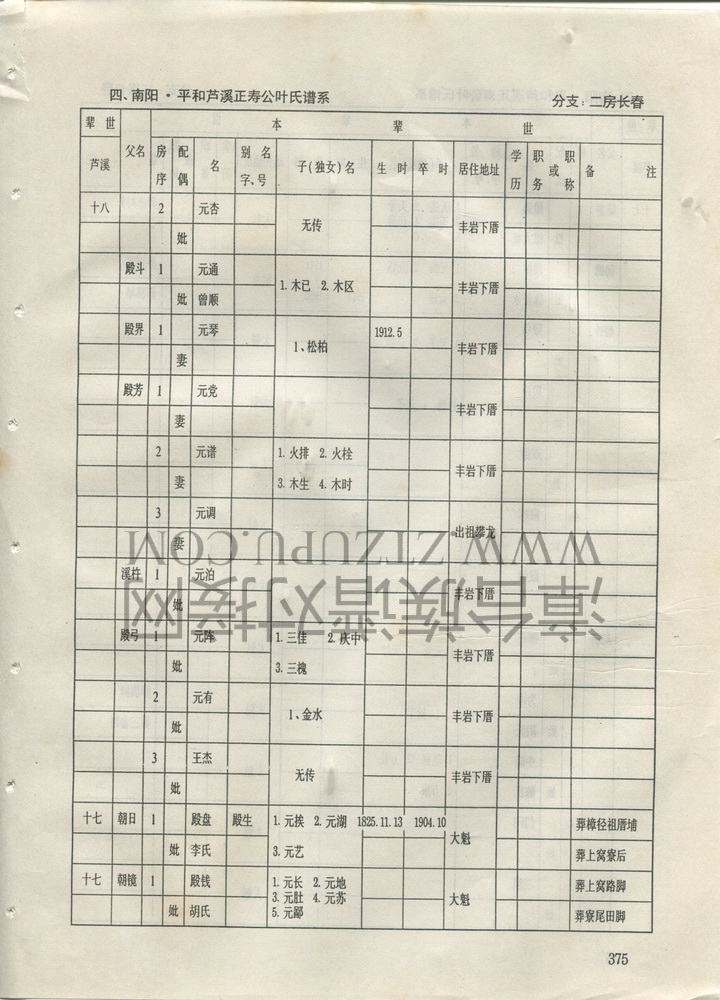 四、南阳·平和芦溪正寿公叶氏谱系 分支：二房长春
辈世 本辈世
芦溪 父名 房序 配偶 名 别名字、号 子(独女)名 生时 卒时 居住地址 学历 职务或职称 备注
十八 2 元杏 无传 丰岩下厝
妣
殿斗 1 元通 1.木已 2.木区 丰岩下厝
妣 曾顺
殿界 1 元琴 1、松柏 1912.5 丰岩下厝
妻
殿芳 1 元党 丰岩下厝
妻
2 元谱 1.火排 2.火栓 丰岩下厝
妻 3.木生 4.木时
3 元调 出祖攀龙
妻
WWW.ZTZUPU.COM
溪杵 1 元泊 丰岩下厝
妣
漳台族谱对接网
殿弓 1 元阵 1.三佳 2.庆中 丰岩下厝
妣 3.三槐
2 元有 1、金水 丰岩下厝
妣
3 王杰 无传 丰岩下厝
妣
十七 朝日 1 殿盘 殿生 1.元挨 2.元湖 1825.11.13 1904.10 大魁 葬樟径祖厝埔
妣 李氏 3.元艺 葬上窝寮后
十七 朝镜 1 殿钱 1.元长 2.元地 大魁 葬上窝路脚
3.元肚 4.元苏
妣 胡氏 5.元鄙 葬寮尾田脚
375